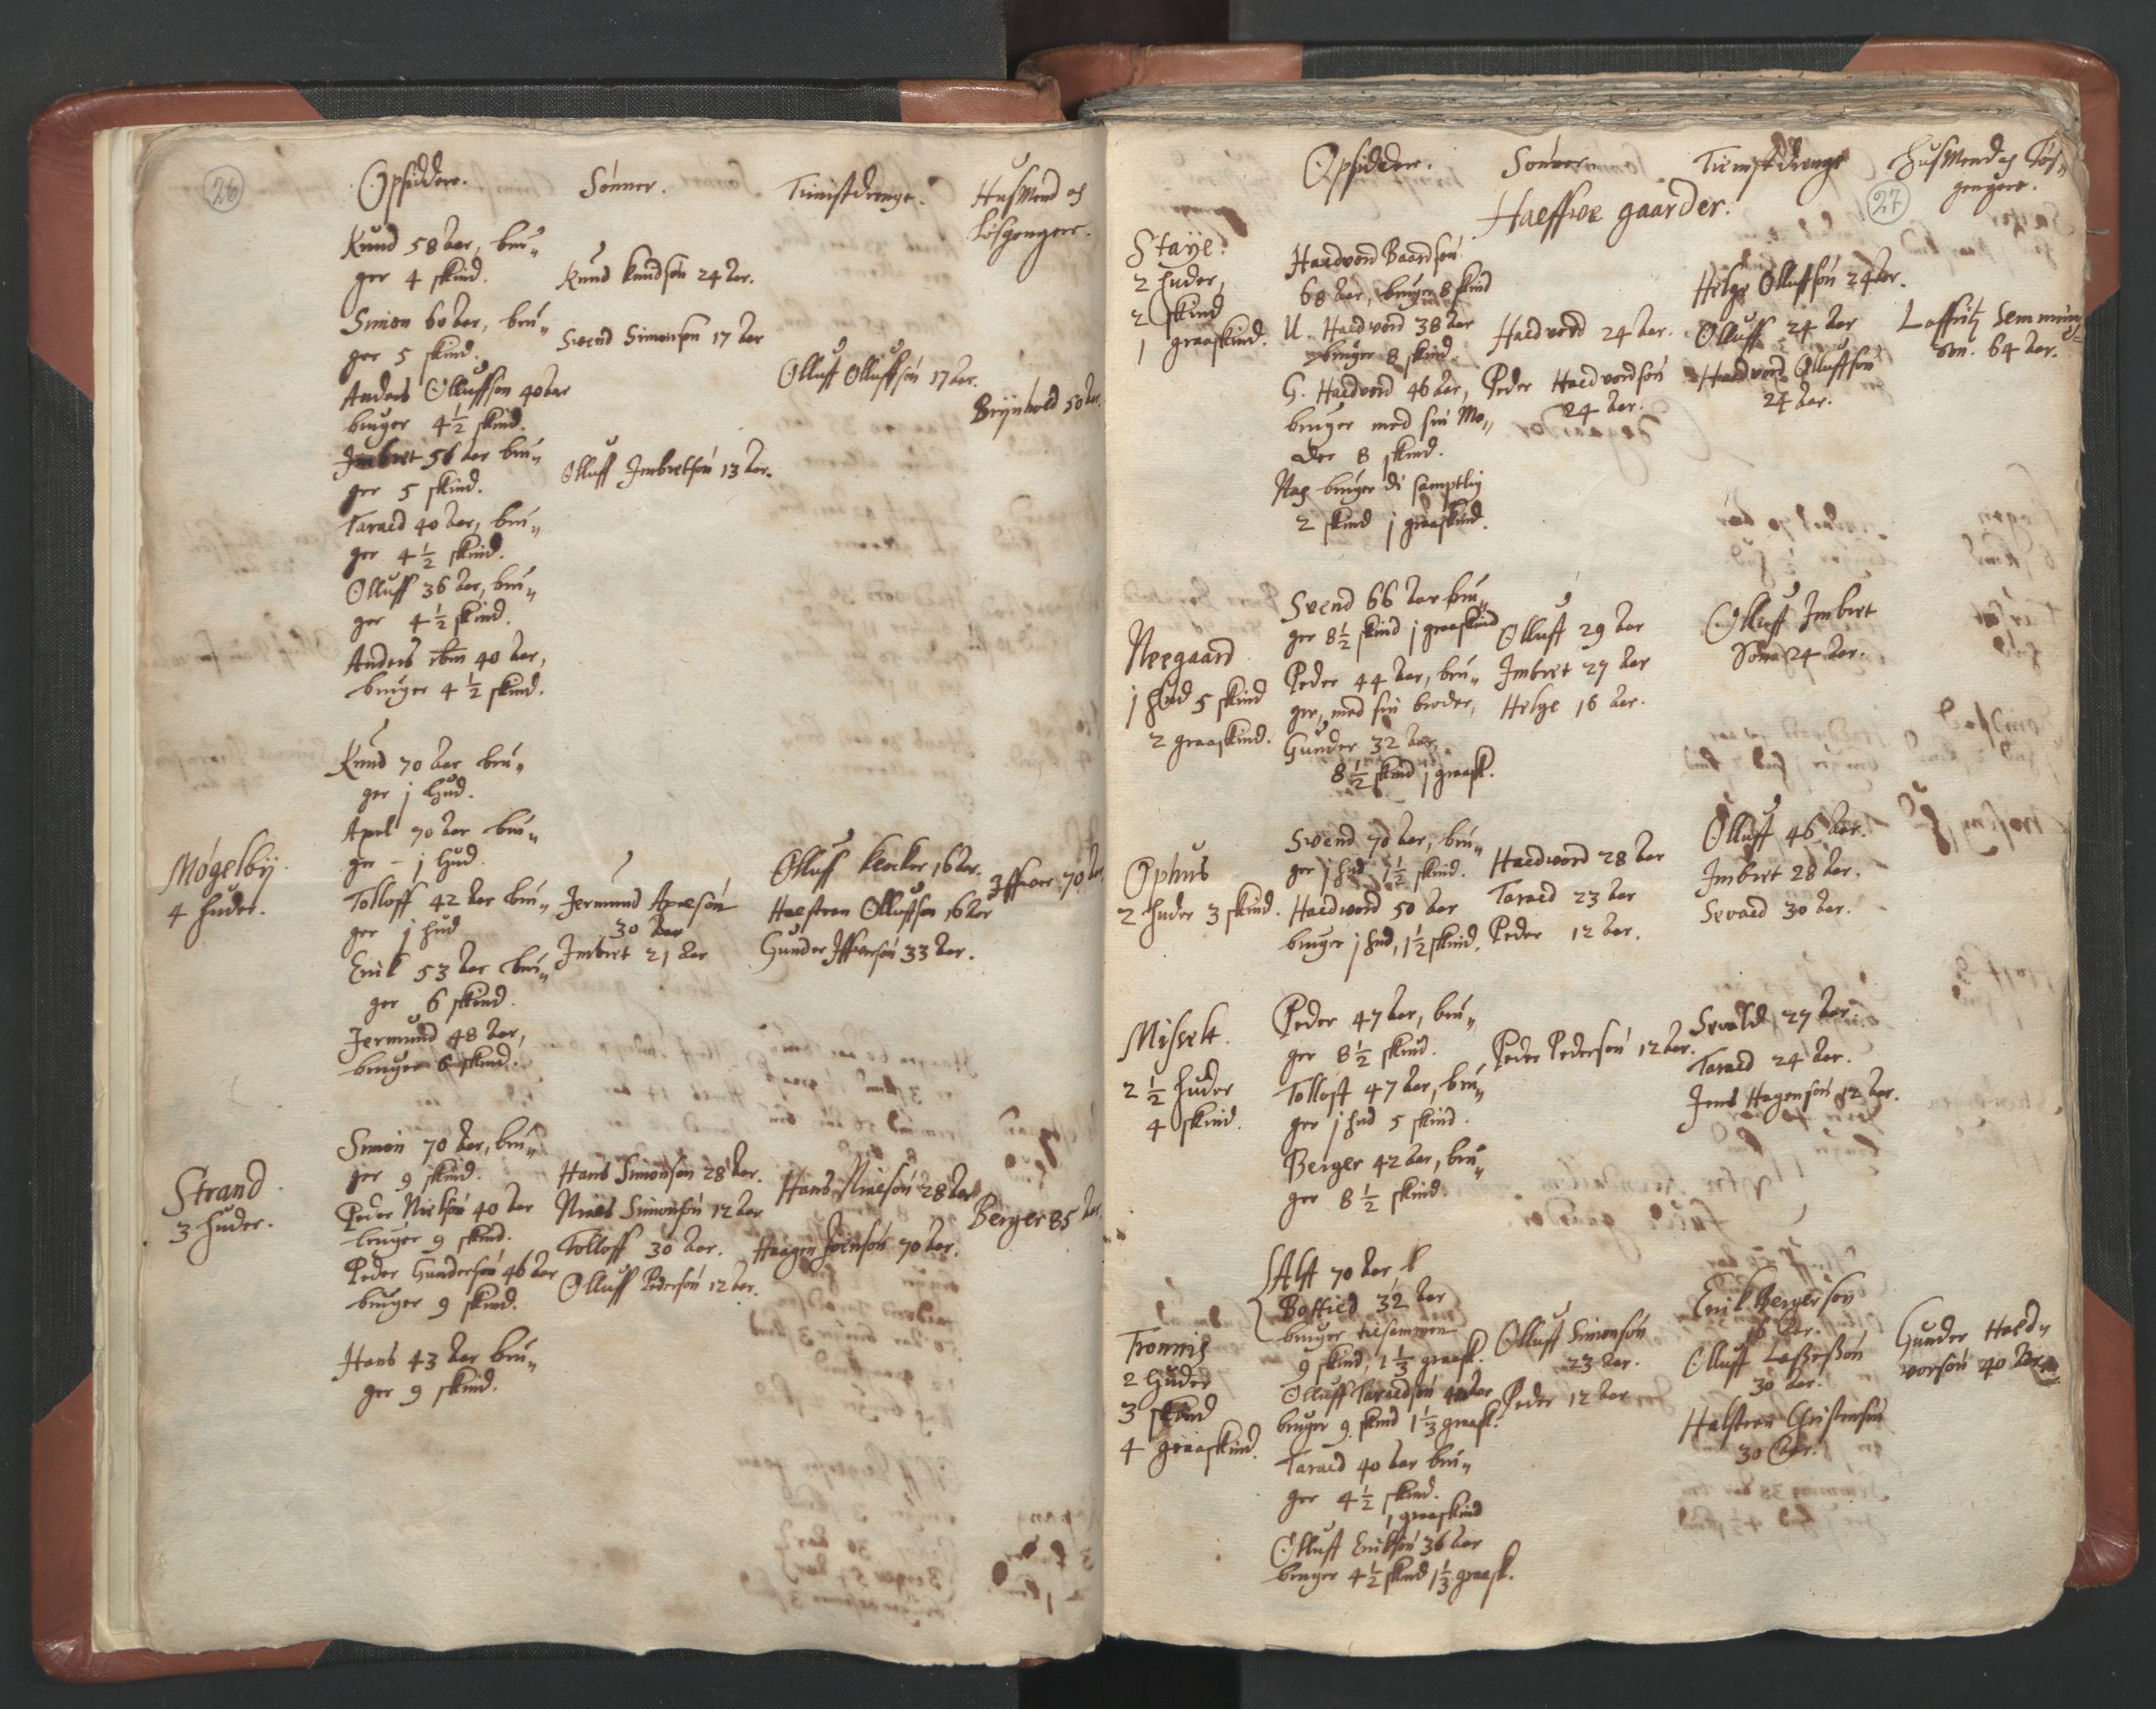 26
Opsiddere.
Sønner.
Tienistdrenge.
HusMend og
Løsgengere.
Knud 58 aar, bru„
ger 4 skind.
Knud Knudsøn 24 aar.
Simon 60 aar, bru„
ger 5 skind.
Svend Simonsøn 17 aar
Anders Olluffsøn 40 aar
bruger 4½ skind.
Olluff Olluffsøn 17 aar.
Brynhild 50 aar.
Imbret 56 aar bru„
ger 5 skind.
Olluff Imbretsøn 13 aar.
Tarald 40 aar, bru„
ger 4½ skind.
Olluff 36 aar, bru„
ger 4½ skind.
Anders ibm 40 aar,
bruger 4½ skind.
Møgelby
4 huder.
Knud 70 aar bru„
ger j Hud.
Axel 70 aar bru„
ger - j Hud.
Tolloff 42 aar bru„
ger j hud
Erik 53 aar bru„
ger 6 skind.
Jermund 48 aar,
bruger 6 skind.
Jermund Axelsøn
30 aar
Imbret 21 aar
Olluff Klocker 16 aar.
Halsten Olluffsøn 16 aar
Gunder Iffversøn 33 aar.
Iffver 70 aar
Strand
3 huder.
Simon 70 aar, bru„
ger 9 skind.
Peder Nielsøn 40 aar
bruger 9 skind.
Peder Gundersøn 46 aar
bruger 9 skind.
Hans 43 aar bru„
ger 9 skind.
Hans Simonsøn 28 aar.
Niels Simonsøn 12 aar
Tolloff 30 aar.
Olluff Pedersøn 12 aar.
Hans Nielsøn 28 aar
Haagen Joensøn 70 aar.
Berger 85 aar.
27
Opsiddere.
Sønner
Tienistdrenge
HusMend og Løs„
gengere.
Halffve gaarder.
Staye.
2 huder,
2 skind
1 graaskind.
Haldvord Baardsøn
68 aar, bruger 8 skind
U. Haldvord 38 aar
bruger 8 skind.
G. Haldvord 46 aar,
bruger med sin Mo„
der 8 skind.
Nach bruger di samptlig
2 skind j graaskind.
Haldvord 24 aar.
Peder Haldvordsøn
24 aar.
Helge Olluffsøn 24 aar.
Olluff 24 aar
Haldvord Olluffsøn
24 aar.
Laffritz Semmind„
søn. 64 aar.
Neegaard
j hud 5 skind
2 graaskind.
Svend 66 aar bru„
ger 8½ skind j graaskind
Peder 44 aar, bru„
ger, med sin broder,
Gunder 32 aar
8½ skind j graask.
Olluff 29 aar
Imbret 27 aar
Helge 16 aar.
Olluff Imbret
Søn 24 aar.
Ophus
2 huder 3 skind.
Svend 70 aar, bru„
ger j hud 1½ skind.
Haldvord 50 aar
bruger j hud, 1½ skind.
Haldvord 28 aar
Tarald 23 aar
Peder 12 aar.
Olluff 46 aar.
Imbret 28 aar.
Sevald 30 aar.
Miselt.
2½ huder
4 skind.
Peder 47 aar, bru„
ger 8½ skind.
Tolloff 47 aar, bru„
ger j hud 5 skind.
Berger 42 aar, bru„
ger 8½ skind
Peder Pedersøn 12 aar.
Sevald 27 aar.
Tarald 24 aar.
Jens Hagensøn 12 aar.
Trønnis
2 huder
3 skind
4 graaskind.
Alff 70 aar
Botfild 32 aar
bruger tilsammen
9 skind, 1⅓ graask.
Olluff Taraldsøn 40 aar
bruger 9 skind 1⅓ graask.
Tarald 40 aar bru„
ger 4½ skind.
1 graaskind
Olluff Eriksøn 36 aar
bruger 4½ skind 1⅓ graask.
Olluff Simonsøn
23 aar.
Peder 12 aar
Erik Bergersøn
16 aar.
Olluff
30 aar.
Halsten Christensøn
30 aar.
Gunder Hald„
vorsøn 40 aar